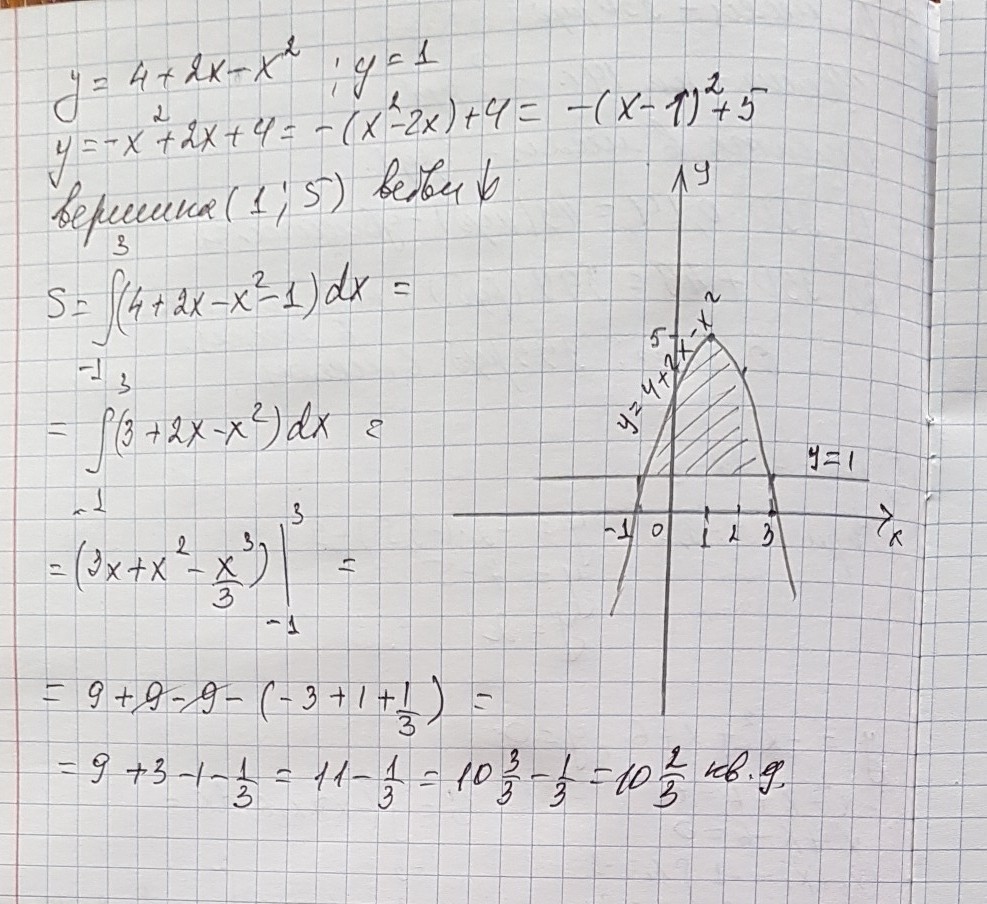 y = 4 + 2x - x² ; y = 1
y = -x² + 2x + 4 = -(x² - 2x) + 4 = -(x - 1)² + 5
вершина (1; 5) ветви ↓
S = ∫₋₁³ (4 + 2x - x² - 1) dx =
= ∫₋₁³ (3 + 2x - x²) dx =
= (3x + x² - x³/3) |₋₁³ =
= 9 + 9 - 9 - (-3 + 1 + 1/3) =
= 9 + 3 - 1 - 1/3 = 11 - 1/3 = 10 3/3 - 1/3 = 10 2/3 кв. ед.
y
5
y = 4 + 2x - x²
y = 1
-1 0 1 2 3 x